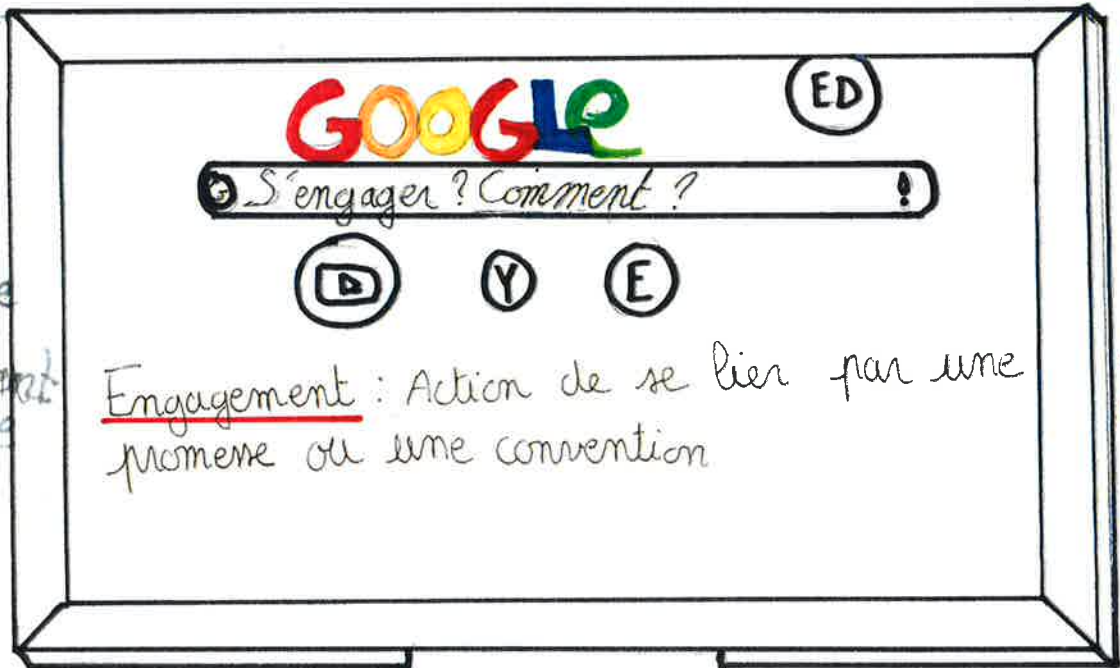 GOOGLE
ED
S'engager ? Comment ?
Y
E
Engagement : Action de se lier par une
promesse ou une convention